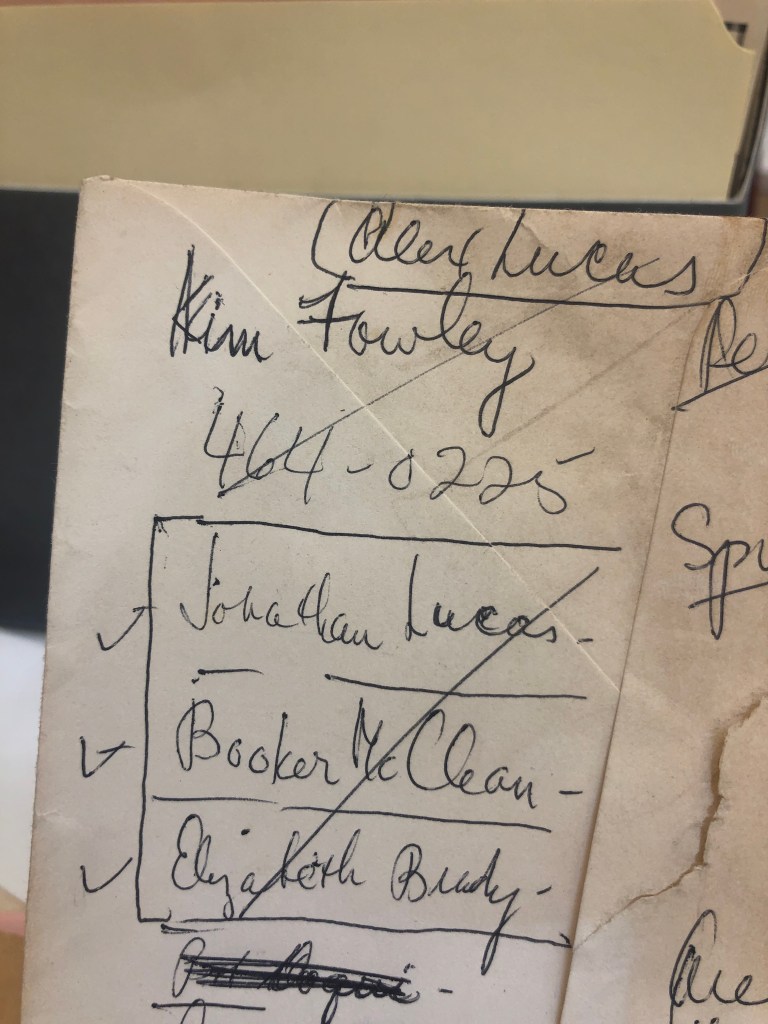 (Alex Lucas)
Kim Fowley
464-0225
Jonathan Lucas-
Booker McClean-
Elizabeth Brady-